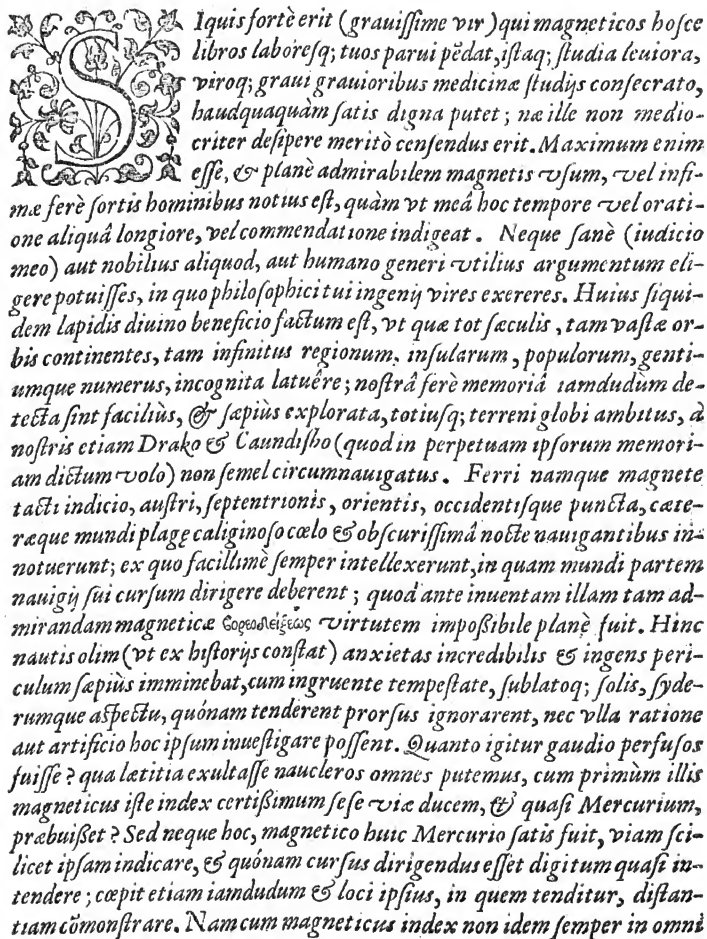 SIquis fortè erit (grauißime vir) qui magneticos hosce
libros laboresq; tuos parui pẽdat, istaq; studia leuiora,
viroq; graui grauioribus medicinæ studijs consecrato,
haudquaquàm satis digna putet; næ ille non medio-
criter desipere meritò censendus erit. Maximum enim
esse, & planè admirabilem magnetis vsum, vel infi-
mæ ferè sortis hominibus notius est, quàm vt meâ hoc tempore vel orati-
one aliquâ longiore, vel commendatione indigeat. Neque sanè (iudicio
meo) aut nobilius aliquod, aut humano generi vtilius argumentum eli-
gere potuisses, in quo philosophici tui ingenij vires exereres. Huius siqui-
dem lapidis diuino beneficio factum est, vt quæ tot sæculis, tam vastæ or-
bis continentes, tam infinitus regionum, insularum, populorum, genti-
umque numerus, incognita latuêre; nostrâ ferè memoriâ iamdudùm de-
tecta sint faciliùs, & sæpiùs explorata, totiusq; terreni globi ambitus, à
nostris etiam Drako & Caundisho (quod in perpetuam ipsorum memori-
am dictum volo) non semel circumnauigatus. Ferri namque magnete
tacti indicio, austri, septentrionis, orientis, occidentisque puncta, cæte-
ræque mundi plagę caliginoso cœlo & obscurissimâ nocte nauigantibus in-
notuerunt; ex quo facillimè semper intellexerunt, in quam mundi partem
nauigij sui cursum dirigere deberent; quod ante inuentam illam tam ad-
mirandam magneticæ βορεοδείξεως virtutem impoßibile planè fuit. Hinc
nautis olim (vt ex historijs constat) anxietas incredibilis & ingens peri-
culum sæpiùs imminebat, cum ingruente tempestate, sublatoq; solis, syde-
rumque aspectu, quónam tenderent prorsus ignorarent, nec vlla ratione
aut artificio hoc ipsum inuestigare possent. Quanto igitur gaudio perfusos
fuisse? qua lætitia exultasse naucleros omnes putemus, cum primùm illis
magneticus iste index certißimum sese viæ ducem, & quasi Mercurium,
præbuißet? Sed neque hoc, magnetico huic Mercurio satis fuit, viam sci-
licet ipsam indicare, & quónam cursus dirigendus esset digitum quasi in-
tendere; cœpit etiam iamdudum & loci ipsius, in quem tenditur, distan-
tiam cõmonstrare. Nam cum magneticus index non idem semper in omni